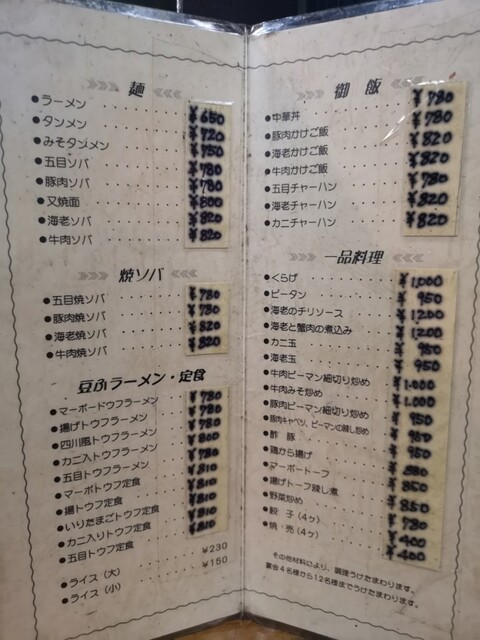 麺
●ラーメン ¥650
●タンメン ¥720
●みそタンメン ¥750
●五目ソバ ¥780
●豚肉ソバ ¥780
●叉焼面 ¥800
●海老ソバ ¥820
●牛肉ソバ ¥820
焼ソバ
●五目焼ソバ ¥780
●豚肉焼ソバ ¥780
●海老焼ソバ ¥820
●牛肉焼ソバ ¥820
豆ふラーメン・定食
●マーボードウフラーメン ¥780
●揚げトウフラーメン ¥780
●四川風トウフラーメン ¥780
●カニ入トウフラーメン ¥800
●五目トウフラーメン ¥780
●マーボトウフ定食 ¥810
●揚トウフ定食 ¥810
●いりたまごトウフ定食 ¥810
●カニ入りトウフ定食 ¥810
●五目トウフ定食
●ライス（大） ¥230
●ライス（小） ¥150
御飯
●中華丼 ¥780
●豚肉かけご飯 ¥780
●海老かけご飯 ¥820
●牛肉かけご飯 ¥820
●五目チャーハン ¥780
●海老チャーハン ¥820
●カニチャーハン ¥820
一品料理
●くらげ ¥1,000
●ピータン ¥950
●海老のチリソース ¥1,200
●海老と蟹肉の煮込み ¥1,200
●カニ玉 ¥950
●海老玉 ¥950
●牛肉ピーマン細切り炒め ¥1,000
●牛肉みそ炒め ¥1,000
●豚肉ピーマン細切り炒め ¥950
●豚肉キャベツ、ピーマンの辣し炒め ¥950
●酢豚 ¥950
●鶏から揚げ ¥880
●マーボートーフ ¥850
●揚げトーフ辣し煮 ¥850
●野菜炒め ¥780
●餃子（4ヶ） ¥400
●焼売（4ヶ） ¥400
その他材料により、調理うけたまわります。
宴会4名様から12名様までうけたまわります。